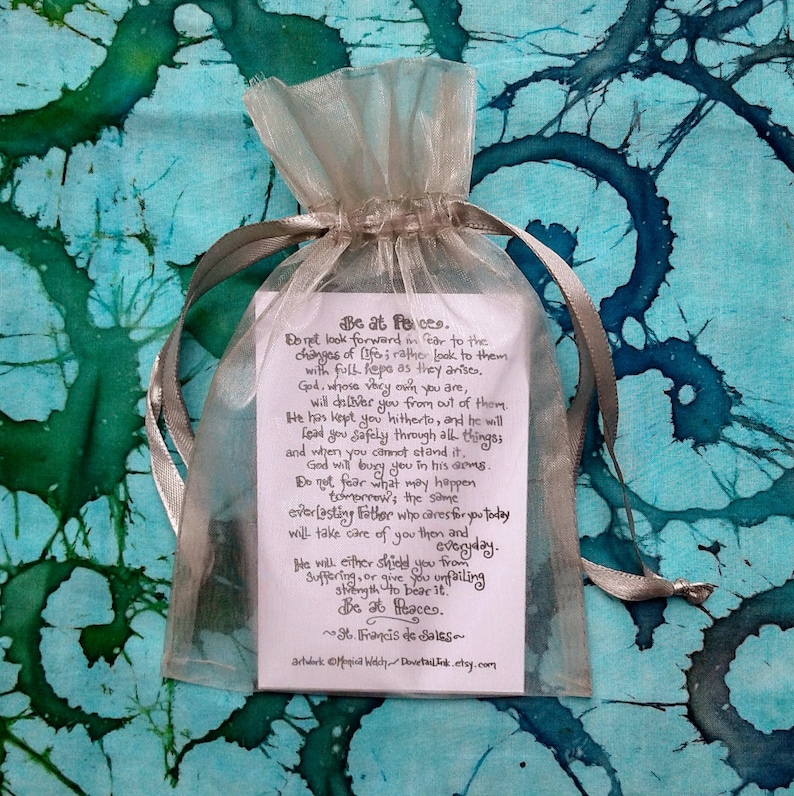 Be at Peace.
Do not look forward in fear to the
changes of life; rather look to them
with full hope as they arise.
God, whose very own you are,
will deliver you from out of them.
He has kept you hitherto, and he will
lead you safely through all things;
and when you cannot stand it,
God will bury you in his arms.
Do not fear what may happen
tomorrow; the same
everlasting Father who cares for you today
will take care of you then and
everyday.
He will either shield you from
suffering, or give you unfailing
strength to bear it.
Be at Peace.
~St. Francis de Sales~
artwork ©Monica Welch~ DovetailInk.etsy.com